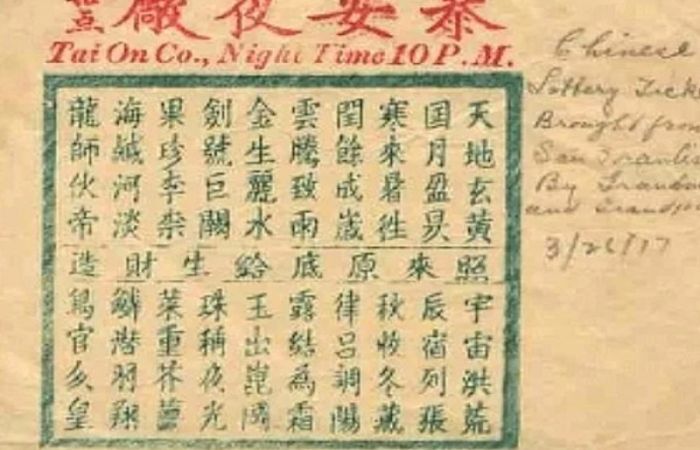 泰安夜廠
Tai On Co., Night Time 10 P.M.
天地玄黃
囯月盈昃
寒來暑徃
閏餘成歲
雲騰致雨
金生麗水
劍號巨闕
果珍李柰
海鹹河淡
龍師伙帝
照來原底給生財造
宇宙洪荒
辰宿列張
秋收冬藏
律呂調陽
露結為霜
玉出崑岡
珠稱夜光
菜重芥薑
鱗潛羽翔
鳥官皇
Chinese
Lottery Tick
Brought from
San Franci
By
and
3/26/17